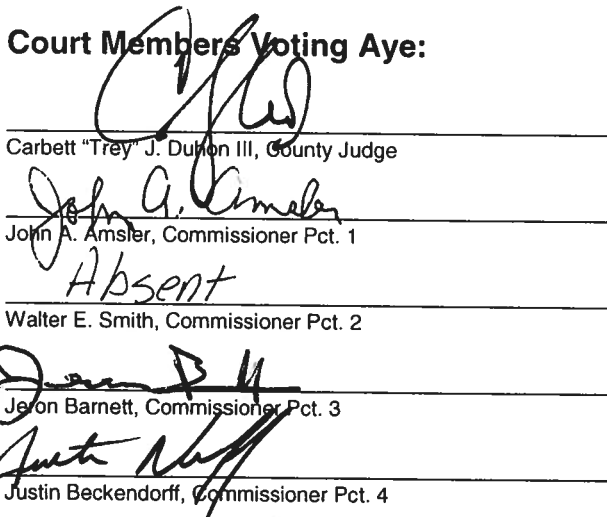 Court Members Voting Aye:
Carbett "Trey" J. Duhon III, County Judge
John A. Amsler
John A. Amsler, Commissioner Pct. 1
Absent
Walter E. Smith, Commissioner Pct. 2
Jeron Barnett, Commissioner Pct. 3
Justin
Justin Beckendorff, Commissioner Pct. 4